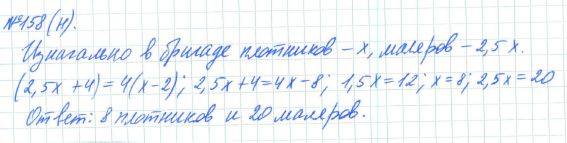 №158(н).
Изначально в бригаде плотников – x, маляров – 2,5x.
(2,5x+4)=4(x-2); 2,5x+4=4x-8; 1,5x=12; x=8; 2,5x=20
Ответ: 8 плотников и 20 маляров.